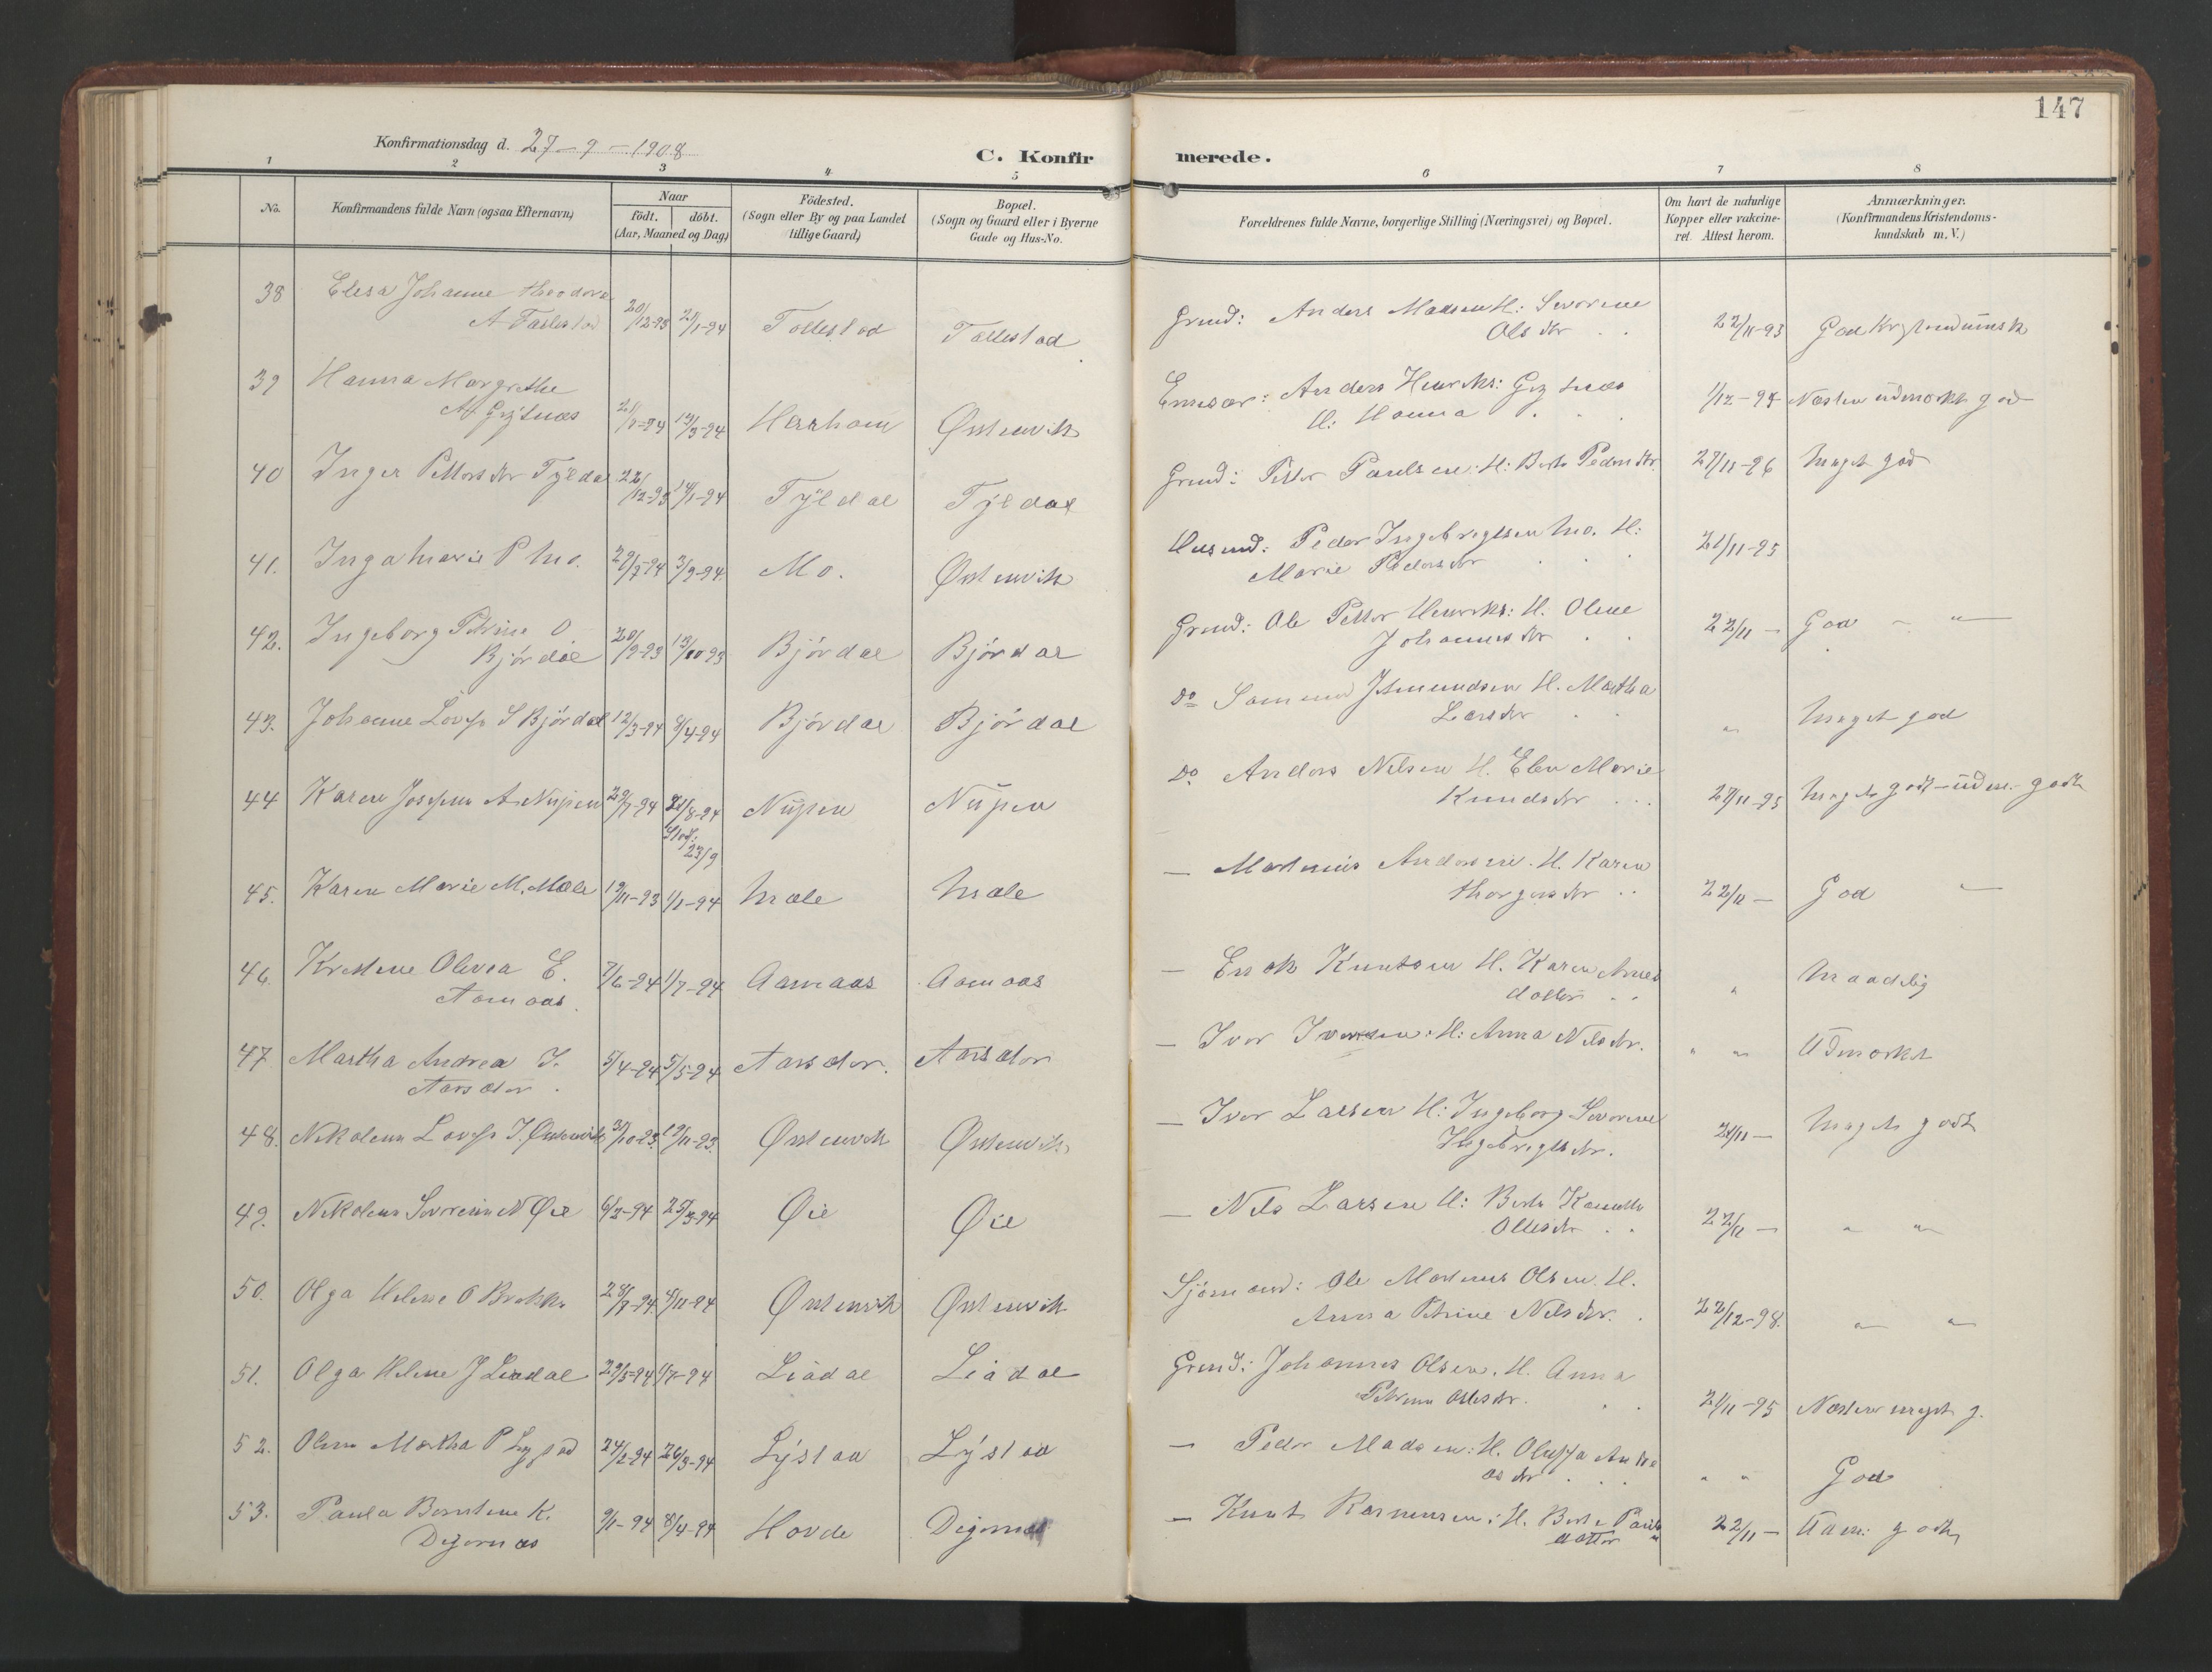 147
Konfirmationsdag d. 27-9-1908
C. Konfirmerede.
1 2 3 4 5 6 7 8
No.
Konfirmandens fulde Navn (ogsaa Efternavn)
Naar
födt. döbt.
(Aar, Maaned og Dag)
Födested.
(Sogn eller By og paa Landet
tillige Gaard)
Bopæl.
(Sogn og Gaard eller i Byerne
Gade og Hus-No.
Forældrenes fulde Navne, borgerlige Stilling (Næringsvei) og Bopæl.
Om havt de naturlige
Kopper eller vakcine-
ret. Attest herom.
Anmærkninger.
(Konfirmandens Kristendoms-
kundskab m. V.)
38 Elesa Johanne Theodora
20/12-93 21/1-94 Tollestad Tollestad Grmd: Anders Madsen H: Severine
Olsdtr 22/11-93
39 Hanna Margrethe
12/3-94 Østenvik Anders Henriks:
H: Hanna Næsten udmærket god
40 Inger Pettersdtr Tyldal 22/12-93 14/1-94 Tyldal Tyldal Grmd: Petter Paulsen: H: Berte Pedersdtr. 27/11-96 Meget god
41. Inga Marie P Mo. 29/7-94 3/9-94 Mo. Østenvik Husmd: Peder Ingebrigtsen Mo. H:
Marie Pedersdtr 21/11-95
42. Ingeborg Petrine O.
Bjórdal 20/9-93 13/10-93 Bjórdal Bjórdal Grmd: Ole Petter Henriks: H. Oline
Johannesdtr 22/11 - God - "
43. Johanne Lovise S Bjórdal 12/3-94 8/4-94 Bjórdal Bjórdal Do H. Martha
Larsdtr " Meget god
44 Karen Josefine A Nupen 29/7-94 Nupen Nupen Do Anders Nilsen H. Elen Marie
Knudsdtr 27/11-95
23/9
45. Karen Marie M. Mæle 19/11-93 1/1-94 Mæle Mæle - Martinus Andersen. H. Karen
22/11 - God "
46. Kristine Olivia E.
Aamaas. 7/6-94 1/7-94 Aamaas Aamaas - Knutsen H. Karen
datter " Maadelig
47 Martha Andrea I.
Aarsæter. 5/4-94 5/5-94 Aarsæter. Aarsæter - Iver Iversen: H: Anna Nilsdtr. " " Udmærket
48. Nikoline Lovise I. Østenvik 19/11-93 Østenvik Østenvik - Iver Larsen H: Ingeborg Severine
Ingebrigtsdtr. 21/11 - Meget godt
49. Nikoline Severine N Øie 25/3-94 Øie Øie - Nils Larsen H: Berte
Olsdtr 22/11 - " "
50. Olga Helene O Brekke 4/11-94 Østenvik Østenvik Sjómand: Ole Martinus Olsen. H.
Anna Petrine Nilsdtr. 22/12-98. " "
51. Olga Helene J Liadal 29/5-94 1/7-94 Liadal Liadal Grmd: Johannes Olsen. H. Anna
Petrine Olsdtr. 21/11-95 Næsten meget g.
52. Oline Martha P Lystad 24/2-94 26/3-94 Lystad Lystad - Peder Madsen: H.
" " God
53. Paula Berntine K.
Digernæs 9/1-94 8/4-94 Hovde Digernæs - Knut Rasmussen: H. Berte Pauls
datter 22/11 - Udm: godt